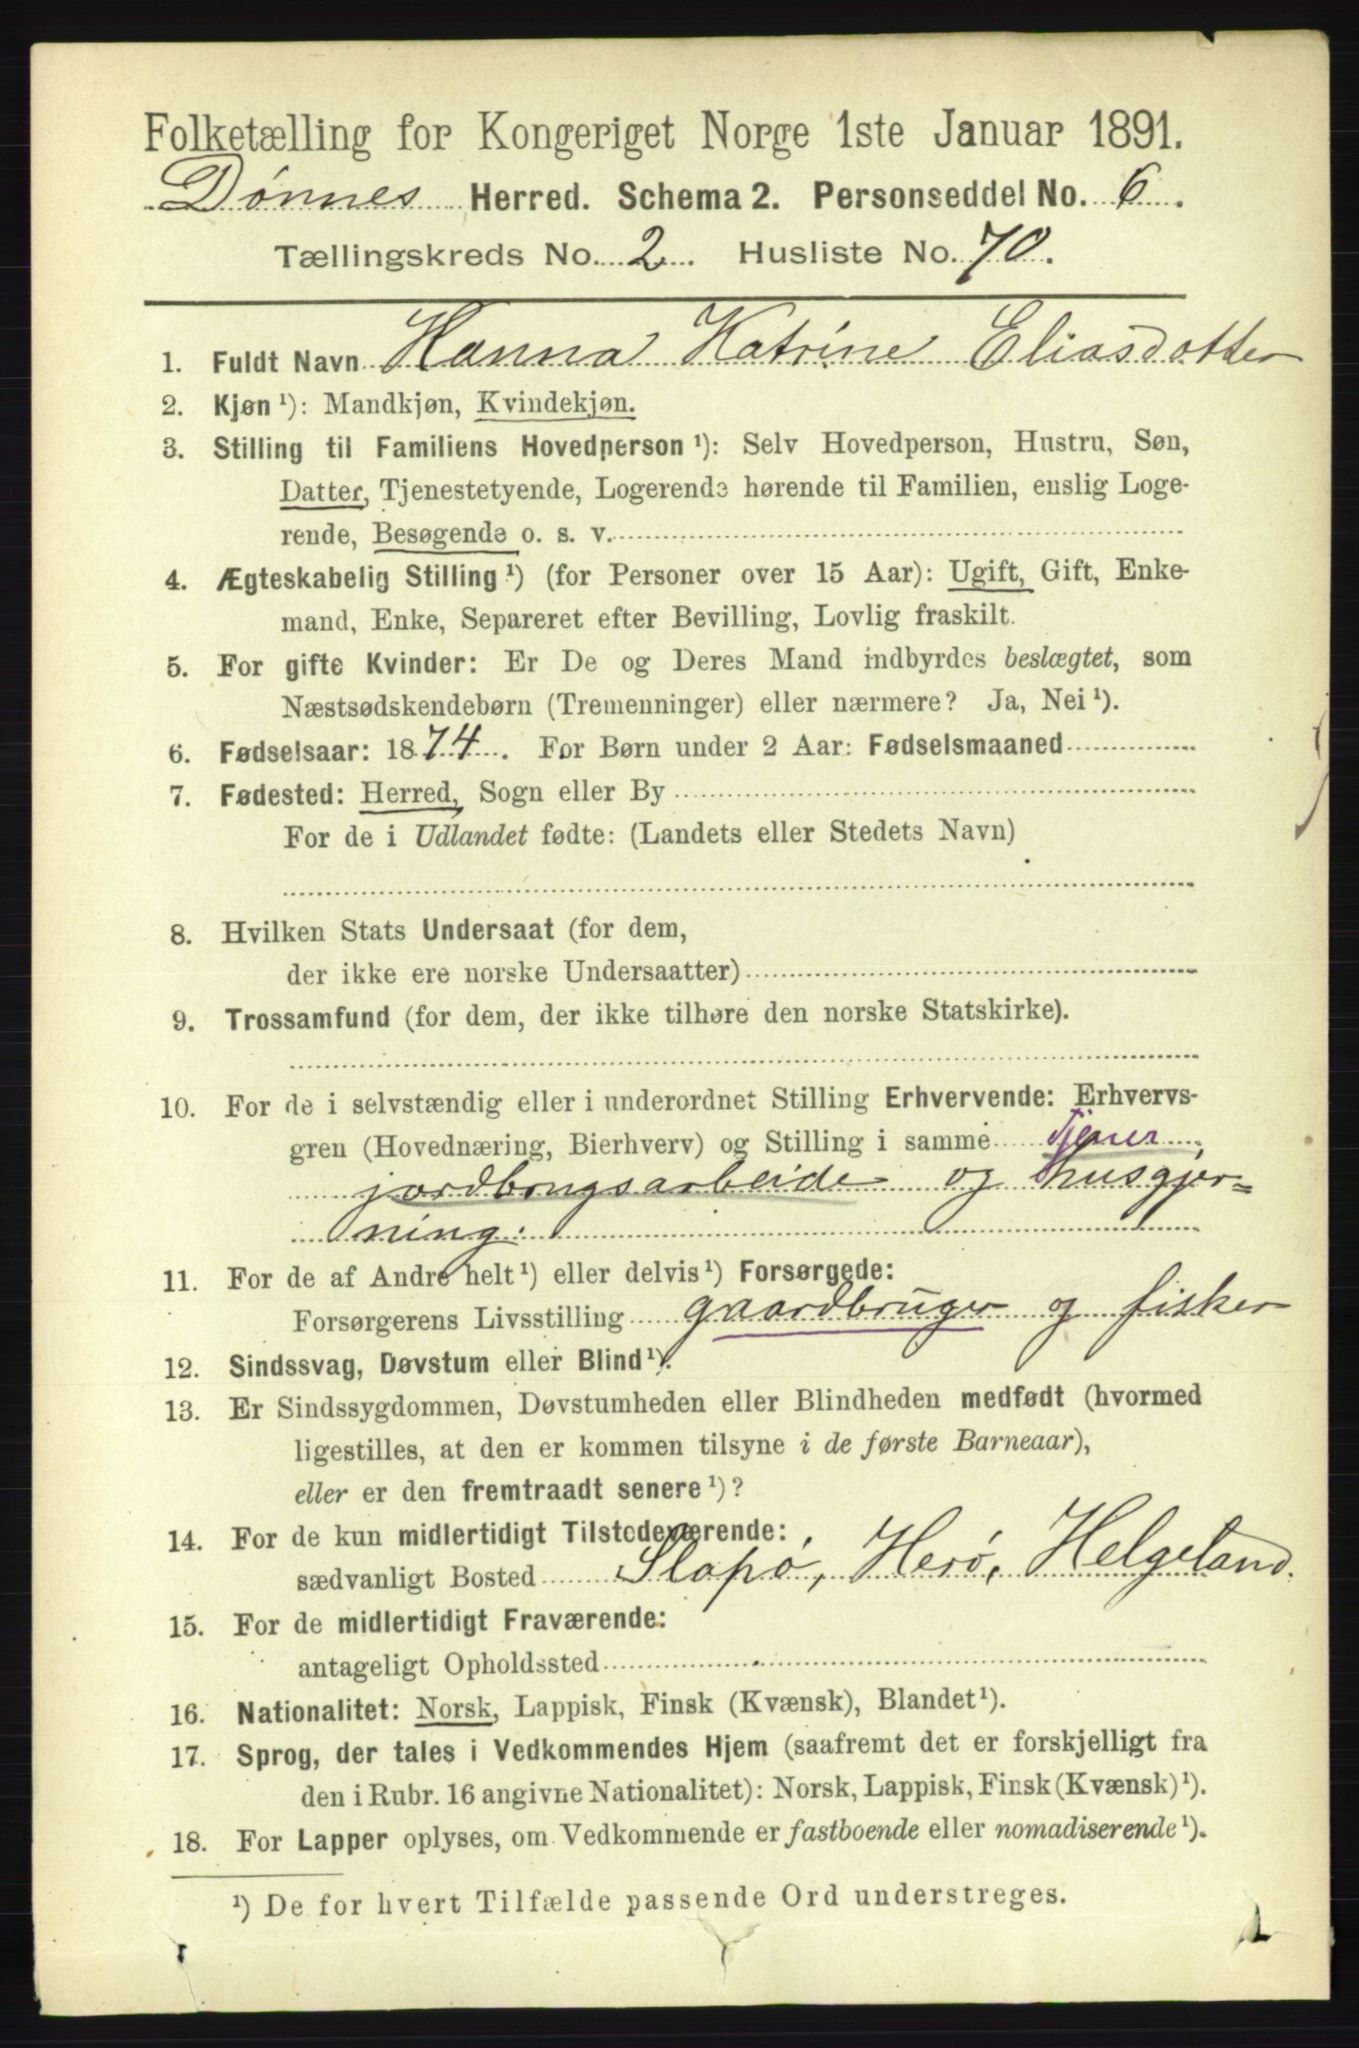 Folketælling for Kongeriget Norge 1ste Januar 1891.
Dønnes Herred. Schema 2. Personseddel No. 6.
Tællingskreds No. 2. Husliste No. 70.
1. Fuldt Navn Hanna Katrine Eliasdotter
2. Kjøn ¹): Mandkjøn, Kvindekjøn.
3. Stilling til Familiens Hovedperson ¹): Selv Hovedperson, Hustru, Søn,
Datter, Tjenestetyende, Logerende hørende til Familien, enslig Loge-
rende, Besøgende o. s. v.
4. Ægteskabelig Stilling ¹) (for Personer over 15 Aar): Ugift, Gift, Enke-
mand, Enke, Separeret efter Bevilling, Lovlig fraskilt.
5. For gifte Kvinder: Er De og Deres Mand indbyrdes beslægtet, som
Næstsødskendebørn (Tremenninger) eller nærmere? Ja, Nei ¹).
6. Fødselsaar: 1874. For Børn under 2 Aar: Fødselsmaaned
7. Fødested: Herred, Sogn eller By
For de i Udlandet fødte: (Landets eller Stedets Navn)
8. Hvilken Stats Undersaat (for dem,
der ikke ere norske Undersaatter)
9. Trossamfund (for dem, der ikke tilhøre den norske Statskirke).
10. For de i selvstændig eller i underordnet Stilling Erhvervende: Erhvervs-
gren (Hovednæring, Bierhverv) og Stilling i samme Tjener
jordbrugsarbeide og husgjer=
ning.
11. For de af Andre helt ¹) eller delvis ¹) Forsørgede:
Forsørgerens Livsstilling gaardbruger og fisker
12. Sindssvag, Døvstum eller Blind ¹).
13. Er Sindssygdommen, Døvstumheden eller Blindheden medfødt (hvormed
ligestilles, at den er kommen tilsyne i de første Barneaar),
eller er den fremtraadt senere ¹)?
14. For de kun midlertidigt Tilstedeværende:
sædvanligt Bosted Slapø, Herø, Helgeland.
15. For de midlertidigt Fraværende:
antageligt Opholdssted
16. Nationalitet: Norsk, Lappisk, Finsk (Kvænsk), Blandet ¹).
17. Sprog, der tales i Vedkommendes Hjem (saafremt det er forskjelligt fra
den i Rubr. 16 angivne Nationalitet): Norsk, Lappisk, Finsk (Kvænsk) ¹).
18. For Lapper oplyses, om Vedkommende er fastboende eller nomadiserende ¹).
¹) De for hvert Tilfælde passende Ord understreges.